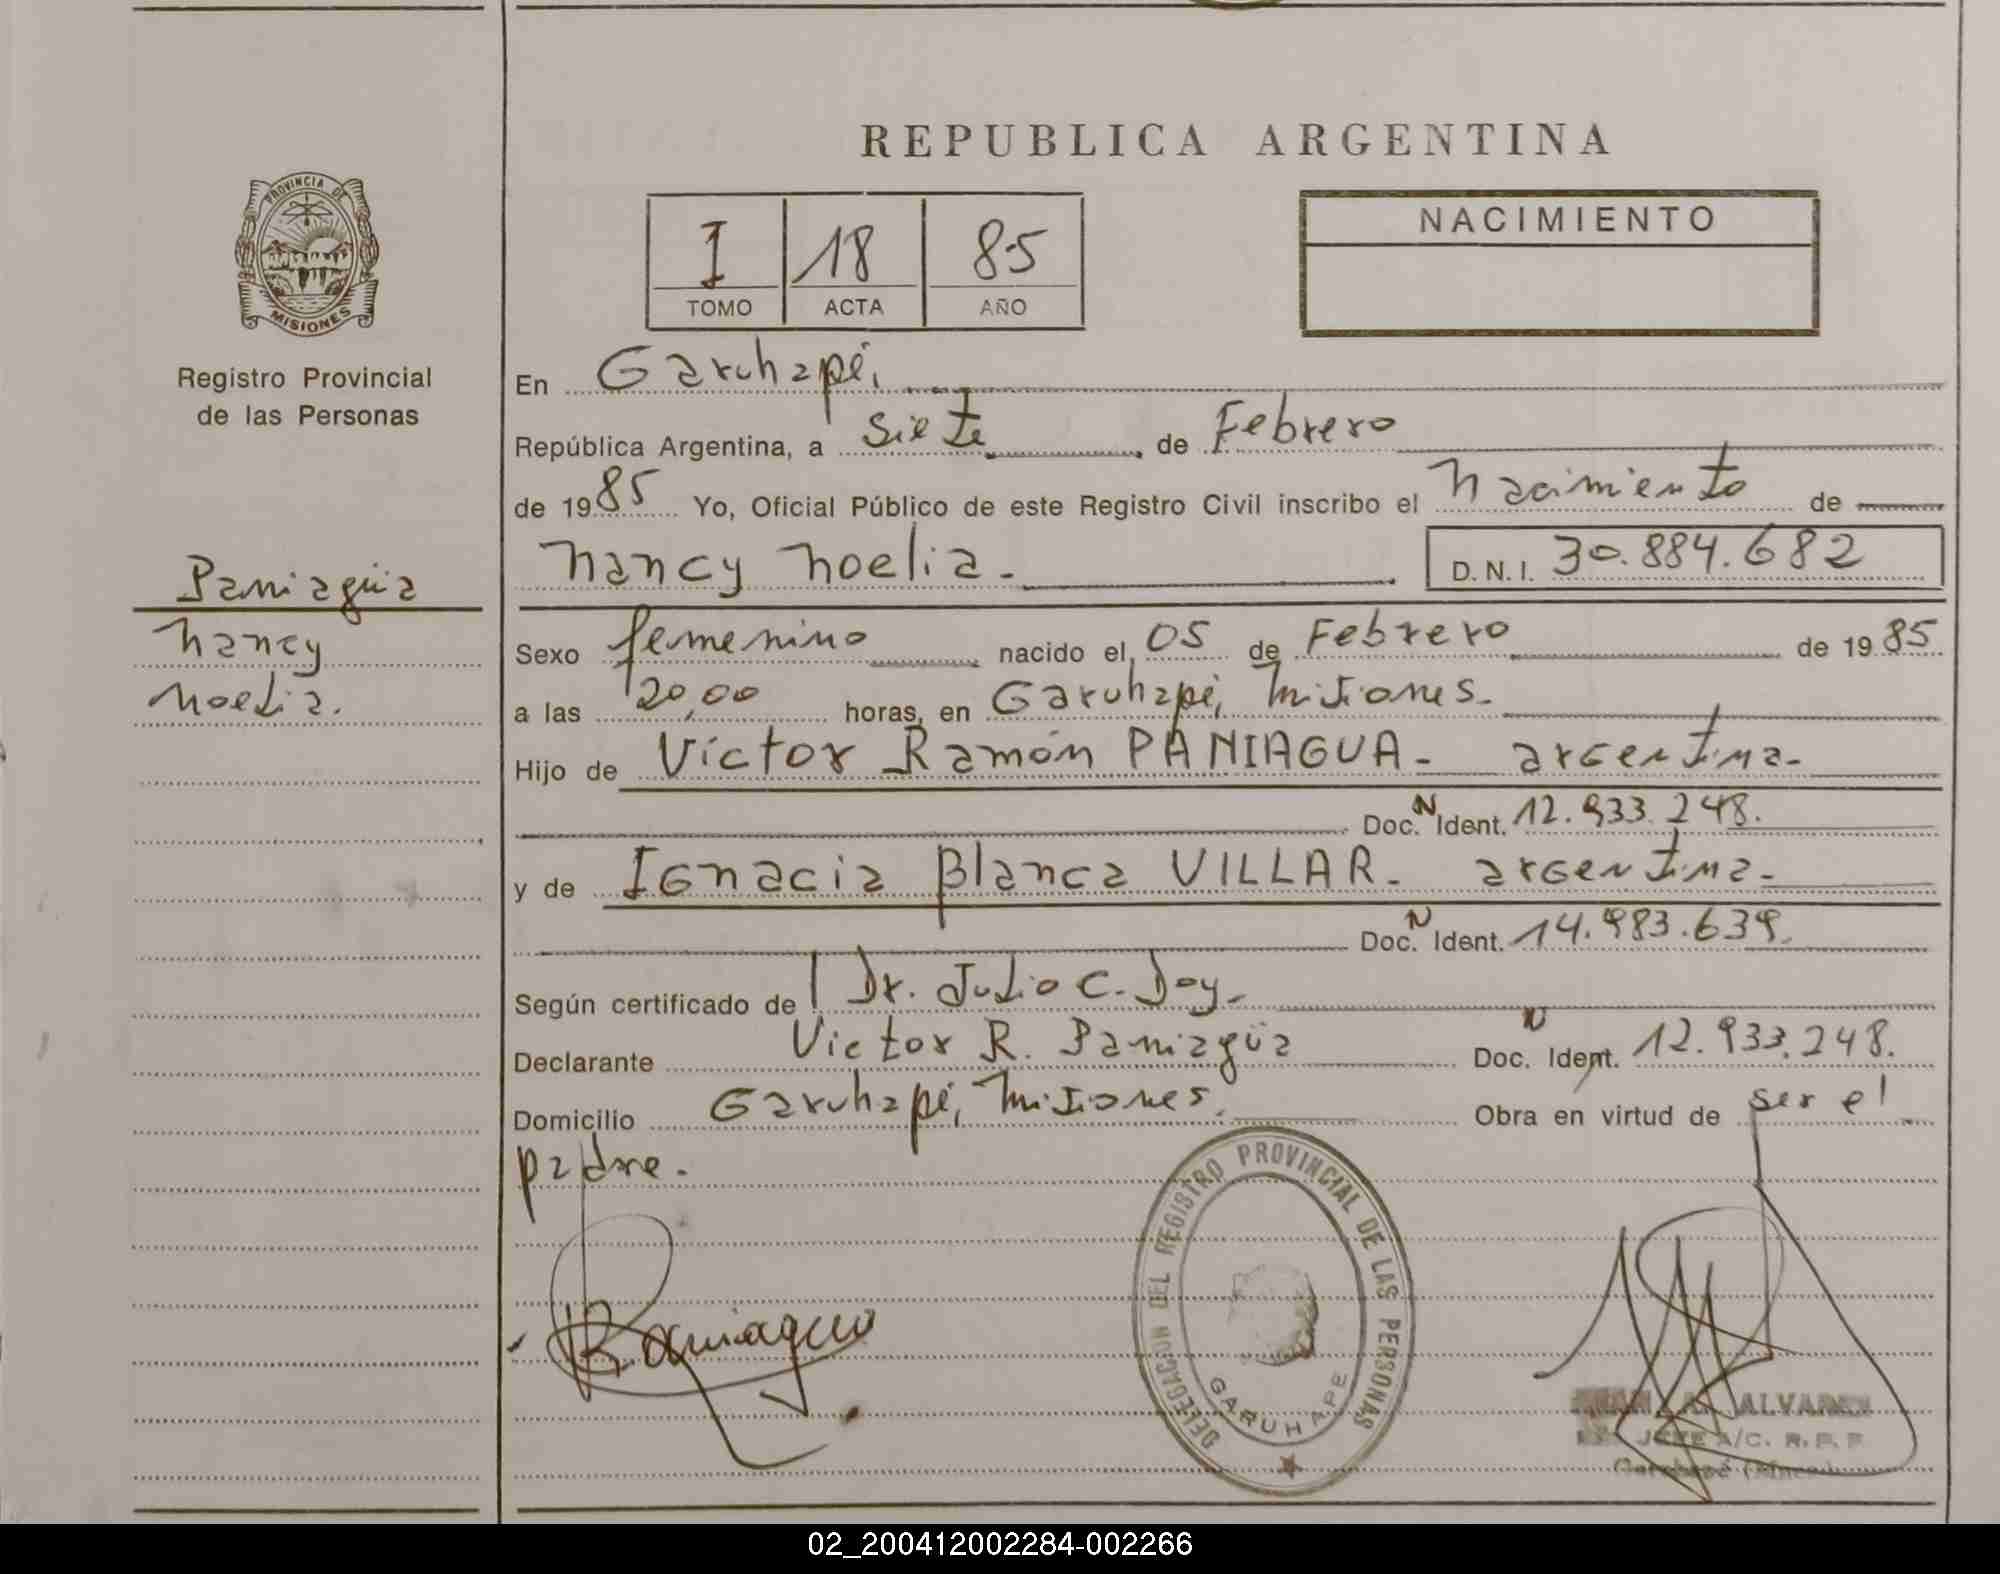 REPUBLICA ARGENTINA
PROVINCIA DE
MISIONES
Registro Provincial
de las Personas
I 18 85
TOMO ACTA AÑO
NACIMIENTO
En Garuhapé,
República Argentina, a Siete de Febrero
de 1985 Yo, Oficial Público de este Registro Civil inscribo el Nacimiento de
Nancy Noelia. D.N.I. 30.884.682
Paniagüa
Nancy
Noelia.
Sexo femenino nacido el 05 de Febrero de 1985
a las 20,00 horas, en Garuhapé, Misiones.
Hijo de Víctor Ramón PANIAGUA. argentina.
Doc. N Ident. 12.933.248.
y de Ignacia Blanca VILLAR. argentina.
Doc. N Ident. 14.983.639.
Según certificado de Dr. Julio C. Doy.
Declarante Victor R. Paniagüa Doc. N Ident. 12.933.248.
Domicilio Garuhapé, Misiones. Obra en virtud de ser el
padre.
DELEGACION DEL REGISTRO PROVINCIAL DE LAS PERSONAS
GARUHAPE
R Paniagua
JEFE A/C. R. P. P.
02_200412002284-002266